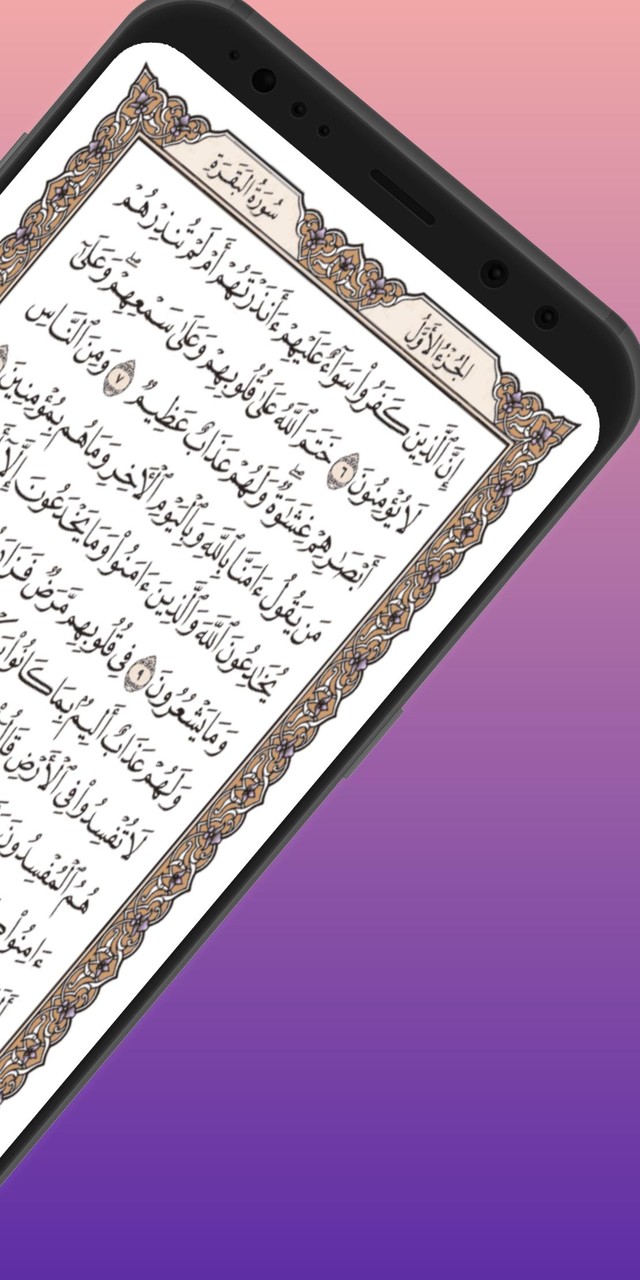 سُورَةُ البَقَرَةِ
الجُزْءُ الأَوَّلُ
إِنَّ ٱلَّذِينَ كَفَرُوا۟ سَوَآءٌ عَلَيْهِمْ ءَأَنذَرْتَهُمْ أَمْ لَمْ تُنذِرْهُمْ
لَا يُؤْمِنُونَ ٦ خَتَمَ ٱللَّهُ عَلَىٰ قُلُوبِهِمْ وَعَلَىٰ سَمْعِهِمْ ۖ وَعَلَىٰٓ
أَبْصَٰرِهِمْ غِشَٰوَةٌ ۖ وَلَهُمْ عَذَابٌ عَظِيمٌ ٧ وَمِنَ ٱلنَّاسِ
مَن يَقُولُ ءَامَنَّا بِٱللَّهِ وَبِٱلْيَوْمِ ٱلْءَاخِرِ وَمَا هُم بِمُؤْمِنِينَ
يُخَٰدِعُونَ ٱللَّهَ وَٱلَّذِينَ ءَامَنُوا۟ وَمَا يَخْدَعُونَ إِلَّآ
وَمَا يَشْعُرُونَ ٩ فِى قُلُوبِهِم مَّرَضٌ
وَلَهُمْ عَذَابٌ أَلِيمٌۢ بِمَا كَانُوا۟
لَا تُفْسِدُوا۟ فِى ٱلْأَرْضِ
هُمُ ٱلْمُفْسِدُونَ
ءَامِنُوا۟